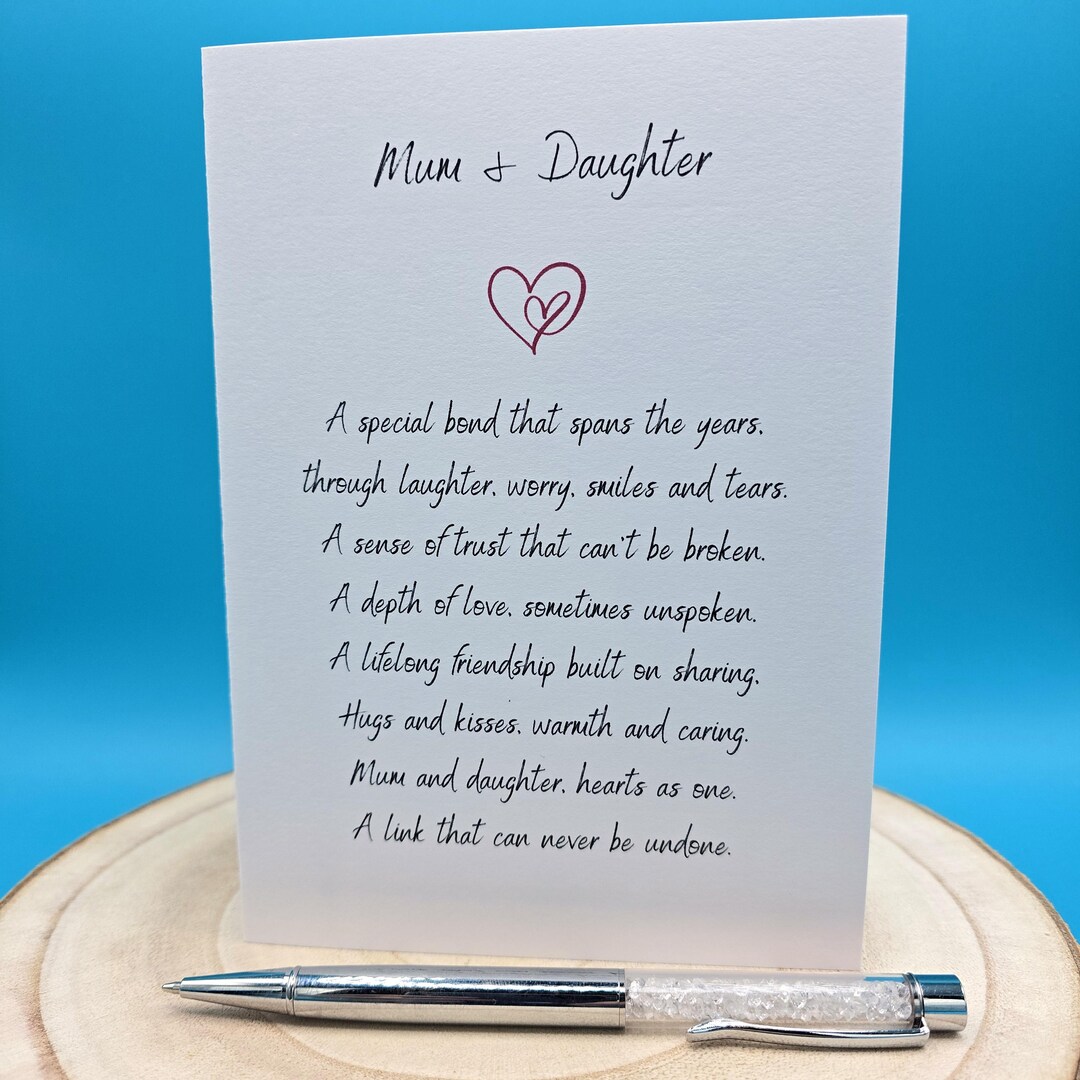 Mum & Daughter
A special bond that spans the years,
through laughter, worry, smiles and tears.
A sense of trust that can't be broken.
A depth of love, sometimes unspoken.
A lifelong friendship built on sharing,
Hugs and kisses, warmth and caring.
Mum and daughter, hearts as one.
A link that can never be undone.